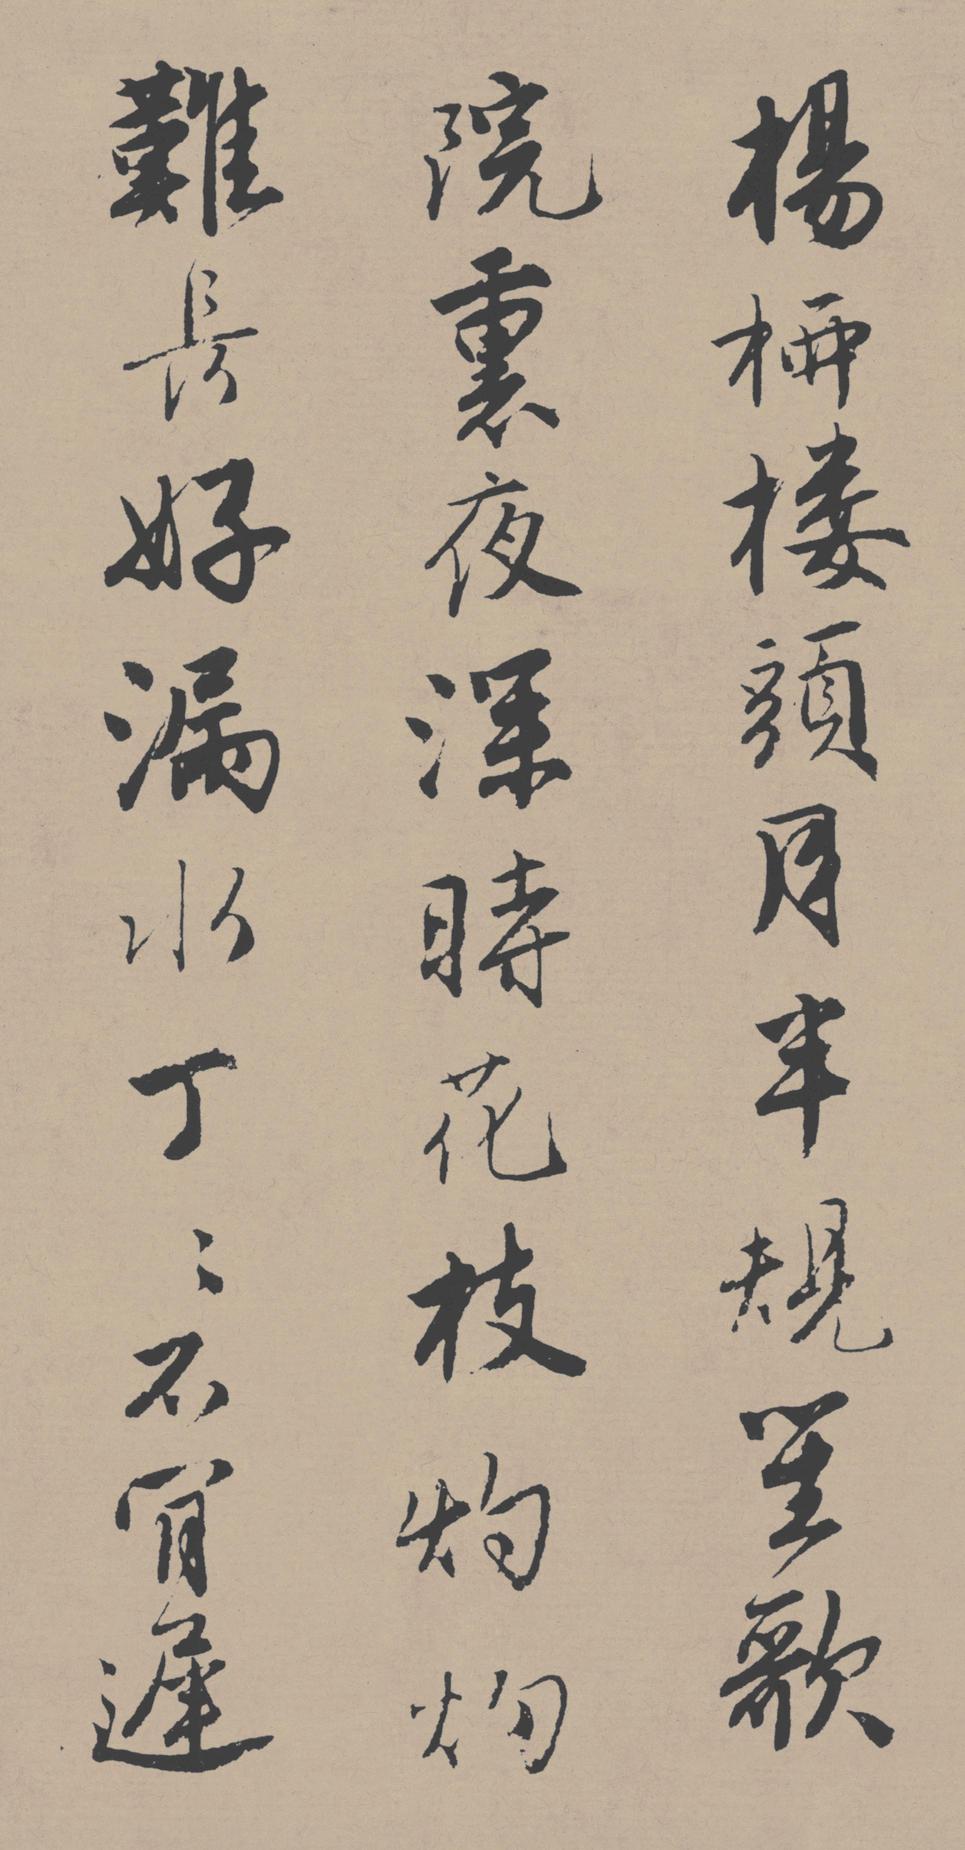 楊柳樓頭月半規笙歌
院裏夜深時花枝灼灼
難長好漏水丁〻不肯遲